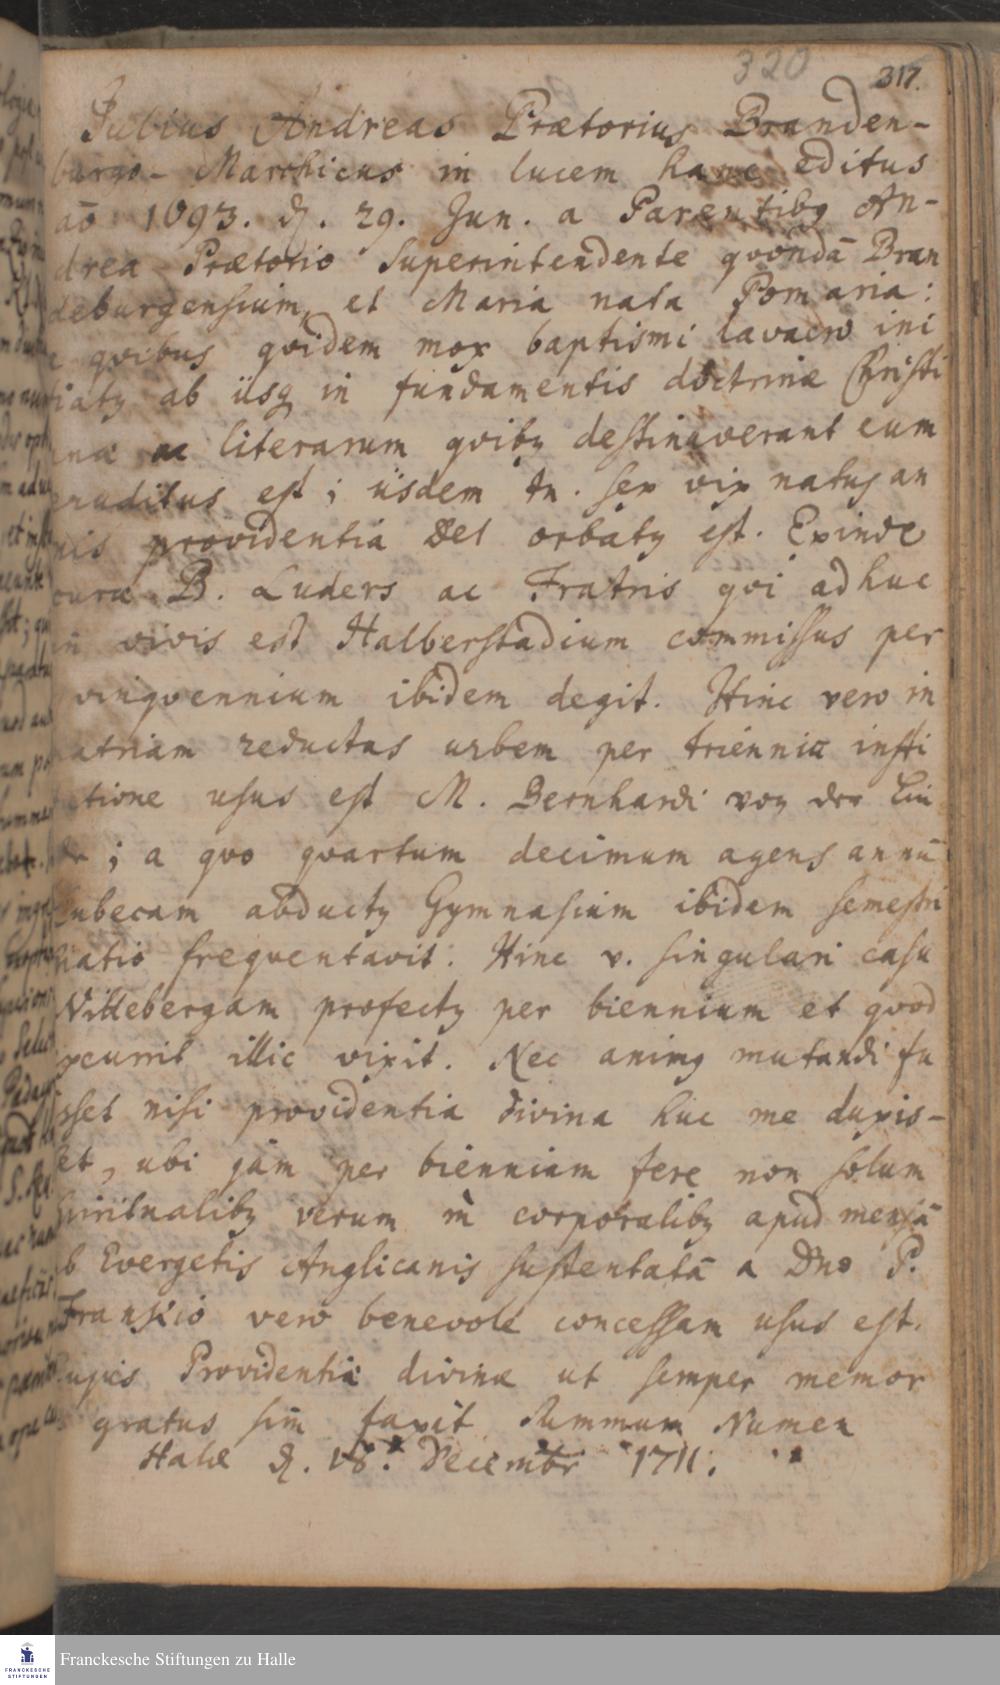 320 317.
Julius Andreas Prætorius Branden-
burgo-Marchicus in lucem hanc editus
aō 1693. d. 29. Jun. a Parentibꝫ An-
drea Prætorio Superintendente qvondā Bran
deburgensium, et Maria nata Pomaria:
e qvibus qvidem mox baptismi lavacro ini
tiatꝫ ab iisqꝫ in fundamentis doctrinæ Christi
anæ ac literarum qvibꝫ destinaverant eum
eruditus est; iisdem tn. sex vix natus an
nis providentia Dei orbatꝫ est. Exinde
curæ B. Luders ac Fratris qvi adhuc
in vivis est Halberstadium commissus per
qvinqvennium ibidem degit. Hinc vero in
patriam reductus urbem per trienniū insti
tutione usus est M. Bernhardi von der Lin
de; a qvo qvartum decimum agens annū
Lubecam abductꝫ Gymnasium ibidem semestri
spatio freqventavit. Hinc v. singulari casu
Wittebergam profectꝫ per biennium et qvod
excurrit illic vixit. Nec animꝫ mutandi fu
isset nisi providentia divina huc me duxis-
set, ubi jam per biennium fere non solum
spiritualibꝫ verum in corporalibꝫ apud mensā
ab Evergetis Anglicanis sustentatā a Dno P.
Franckio vero benevole concessam usus est.
Cujus Providentiæ divinæ ut semper memor
gratus sim faxit Summum Numen
Halæ d. 18. Decembr 1711.
FRANCKESCHE
STIFTUNGEN
Franckesche Stiftungen zu Halle